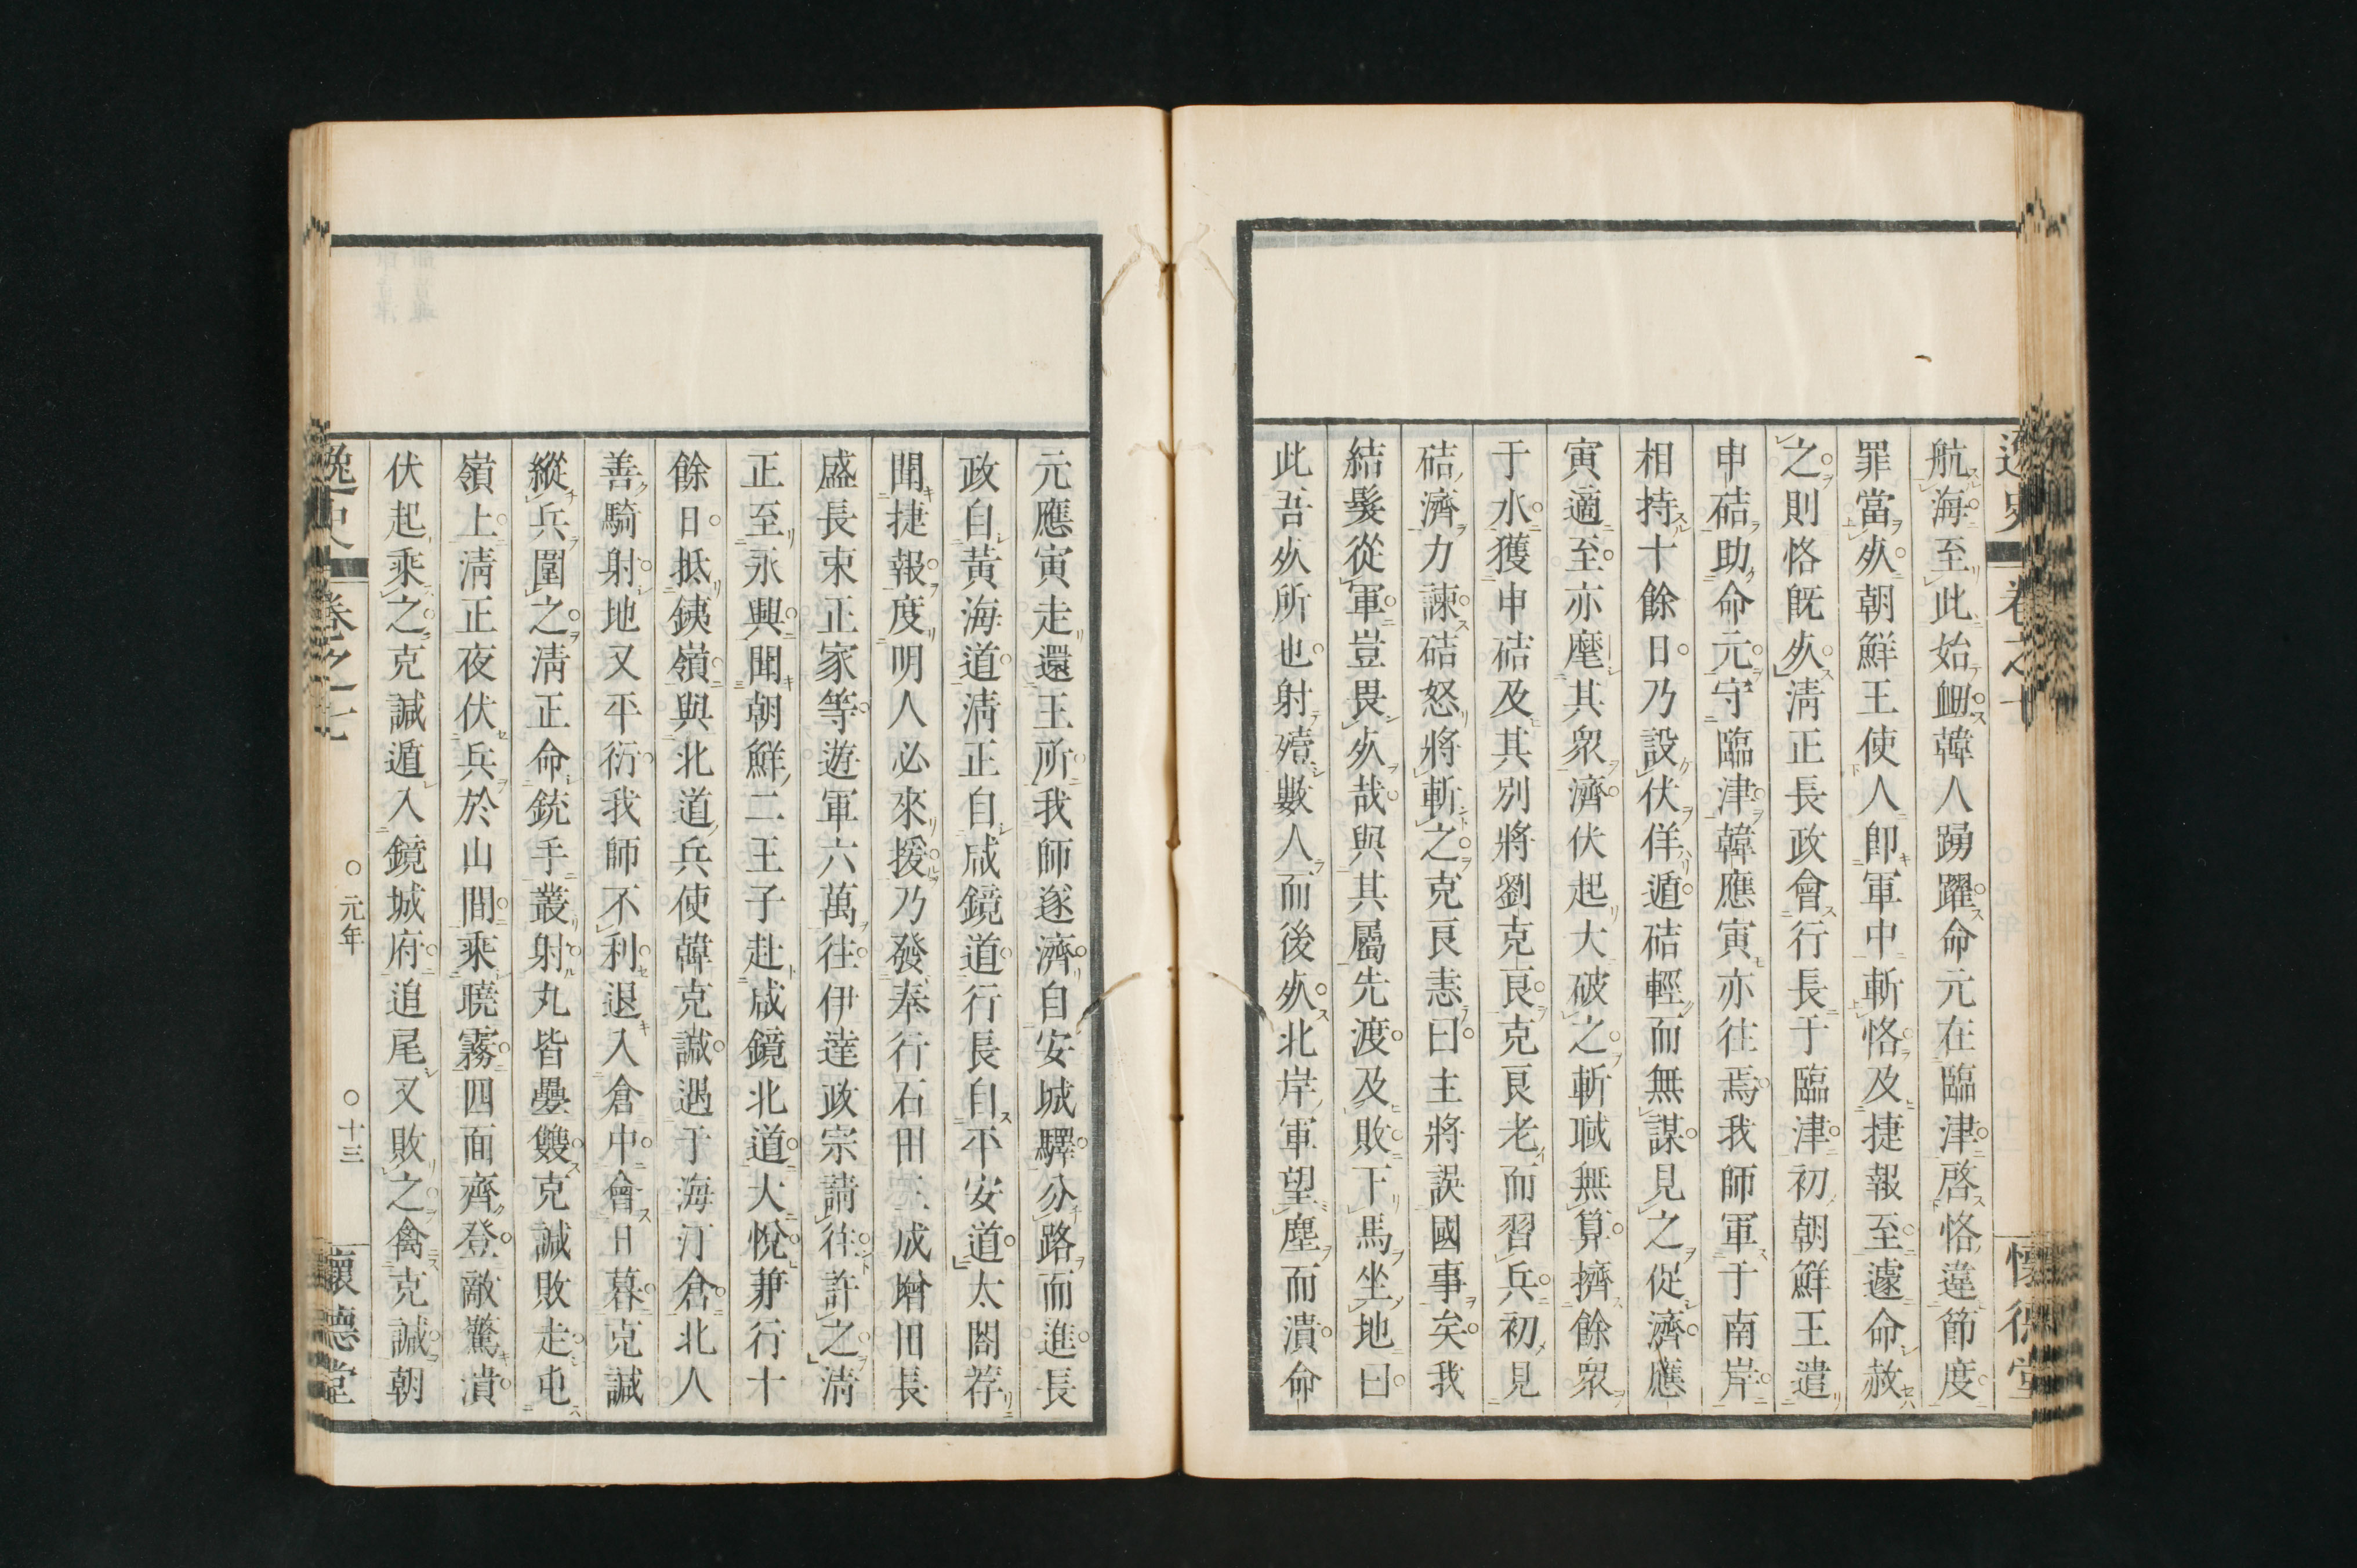 航海至此始衂韓人踴躍命元在臨津啓恪違節度
罪當𠧧朝鮮王使人卽軍中斬恪及捷報至遽命赦
之則恪既𠧧淸正長政會行長于臨津初朝鮮王遣
申硈助命元守臨津韓應寅亦往焉我師軍于南岸
相持十餘日乃設伏佯遁硈輕而無謀見之促濟應
寅適至亦麾其眾濟伏起大破之斬馘無算擠餘眾
于水獲申硈及其別將劉克良克良老而習兵初見
硈濟力諫硈怒將斬之克良恚曰主將誤國事矣我
結髮從軍豈畏𠧧哉與其屬先渡及敗下馬坐地曰
此吾𠧧所也射殪數人而後𠧧北岸軍望塵而潰命
元應寅走還王所我師遂濟自安城驛分路而進長
政自黃海道淸正自咸鏡道行長自平安道太閤荐
聞捷報度明人必來援乃發奉行石田三成增田長
盛長束正家等遊軍六萬往伊達政宗請往許之淸
正至永興聞朝鮮二王子赴咸鏡北道大悅兼行十
餘日抵鐵嶺與北道兵使韓克諴遇于海汀倉北人
善騎射地又平衍我師不利退入倉中會日暮克諴
縱兵圍之淸正命銃手叢射丸皆疊雙克諴敗走屯
嶺上淸正夜伏兵於山間乘曉霧四面齊登敵驚潰
伏起乘之克諴遁入鏡城府追尾又敗之禽克諴朝
逸史 卷之七 ○元年 ○十三 懷德堂